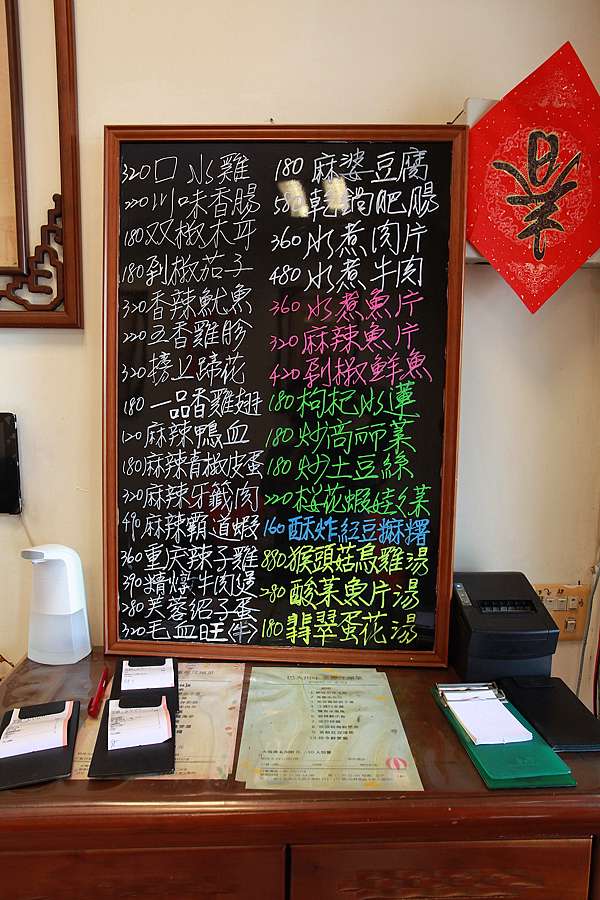 320口水雞
220川味香腸
180双椒木耳
180剁椒茄子
320香辣魷魚
220五香雞胗
320擄上蹄花
180一品香雞翅
120麻辣鴨血
180麻辣青椒皮蛋
320麻辣牙籤肉
490麻辣霸道蝦
360重庆辣子雞
390精燉牛肉煲
280芙蓉紹子蛋
320毛血旺(牛)
180麻婆豆腐
580乾鍋肥腸
360水煮肉片
480水煮牛肉
360水煮魚片
320麻辣魚片
420剁椒鮮魚
180枸杞水蓮
180炒高丽菜
180炒土豆絲
220桜花蝦娃娃菜
160酥炸紅豆麻糬
880猴頭菇烏雞湯
280酸菜魚片湯
180翡翠蛋花湯